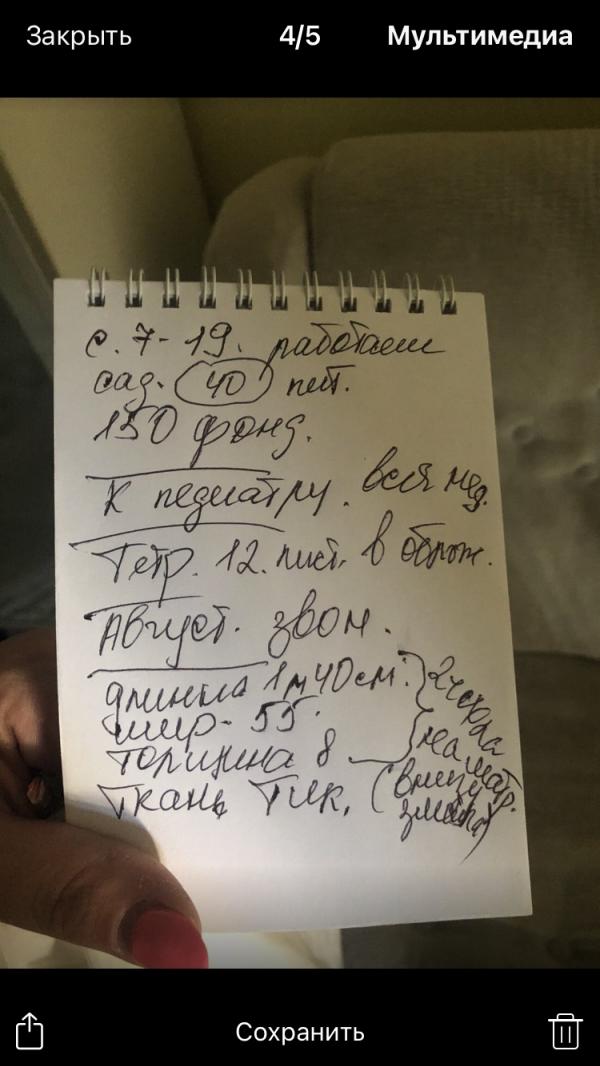 Закрыть 4/5 Мультимедиа
с. 7-19. работаем
сад. 40 пит.
150 фонд.
К педиатру. вся нед.
Тетр. 12. лист. в облож.
Август. звон.
длинна 1м 40см.
шир - 55.
толщина 8
Ткань Тик,
2 чехла
на матр.
(внизу
змейка)
Сохранить